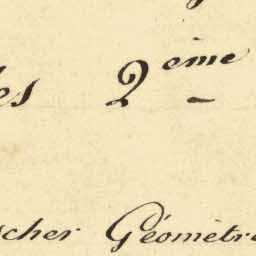 es 2ème
scher Géomètre